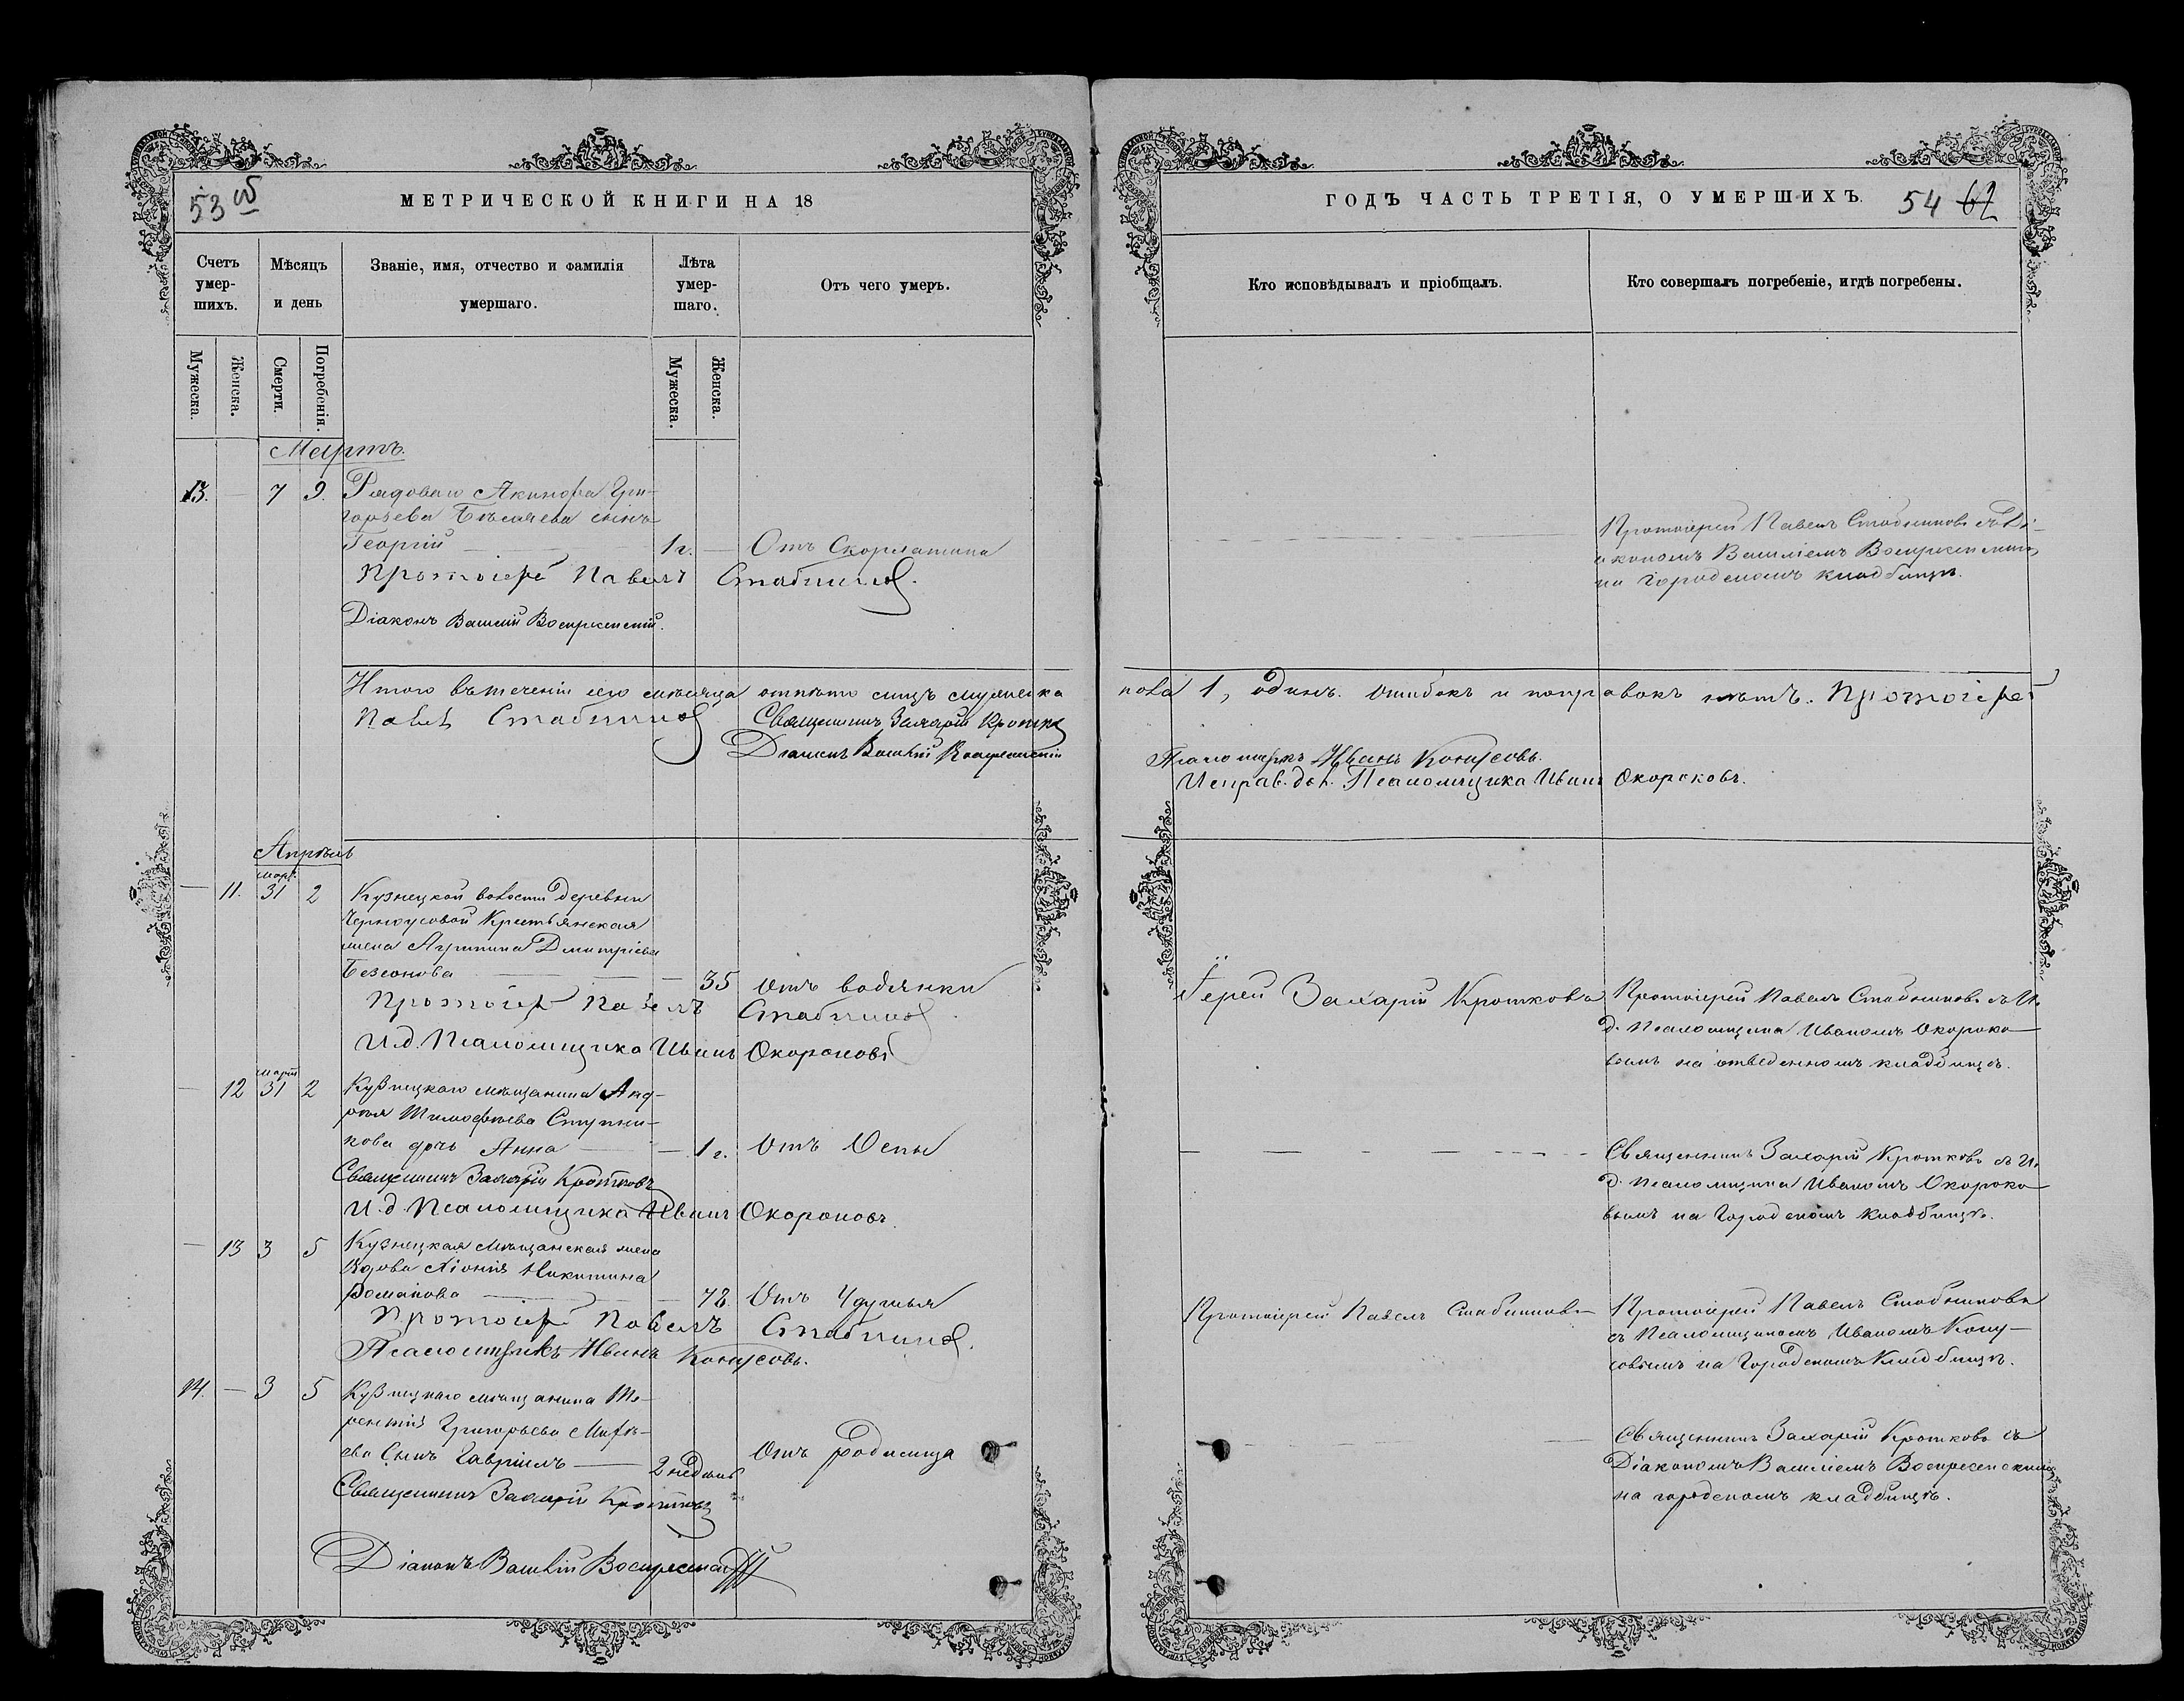 53 об
МЕТРИЧЕСКОЙ КНИГИ НА 18
Счетъ умер-шихъ.
Мѣсяцъ и день
Званіе, имя, отчество и фамилія умершаго.
Лѣта умер-шаго.
Отъ чего умеръ.
Мужеска.
Женска.
Смерти.
Погребенія.
Мужеска.
Женска.
Мартъ.
13. — 7 9. Рядоваго Акинфа Гри-
горьева сынъ
Георгій — 1 г. — Отъ Скарлатина
Протоіерей Павелъ Стабниковъ.
Діаконъ Василій Воскресенскій.
Итого въ теченіи сего мѣсяца отпѣто лицъ мужеска
Павелъ Стабниковъ Священникъ Захарій Кротковъ
Діаконъ Василій Воскресенскій
Апрѣль
март.
— 11. 31 2 Кузнецкой волости деревни
Черноусовой Крестьянская
жена Агрипина Дмитріева
Безсонова — 35 Отъ водянки
Протоіерей Павелъ Стабниковъ
И.д. Псаломщика Иванъ Окороковъ
март
— 12 31 2 Кузнецкаго мѣщанина Анд-
рея Тимофѣева Ступни-
кова дочь Анна — 1 г. Отъ Оспы
Священникъ Захарій Кротковъ
И.д. Псаломщика Иванъ Окороковъ.
— 13 3 5 Кузнецкая мѣщанская жена
Вдова Никитина
Романова — 78. Отъ Удушья
Протоіерей Павелъ Стабниковъ.
Псаломщикъ Иванъ Конусовъ.
14. — 3 5 Кузнецкаго мѣщанина Те-
рентія Григорьева
ева Сынъ Гавріилъ — 2 недѣли Отъ родимица
Священникъ Захарій Кротковъ
Діаконъ Василій Воскресенскій
ГОДЪ ЧАСТЬ ТРЕТІЯ, О УМЕРШИХЪ. 54 62
Кто исповѣдывалъ и пріобщалъ.
Кто совершалъ погребеніе, и гдѣ погребены.
Протоіерей Павелъ Стабниковъ съ Ді-
акономъ Василіемъ Воскресенскимъ
на городскомъ кладбищѣ.
пола 1, одинъ. Ошибокъ и поправокъ нѣтъ. Протоіерей
Псаломщикъ Иванъ Конусовъ.
Исправ. дол. Псаломщика Иванъ Окороковъ.
Іерей Захарій Кротковъ Протоіерей Павелъ Стабниковъ съ И.
д. Псаломщика Иваномъ Окороко-
вымъ на отведенномъ кладбищѣ.
Священникъ Захарій Кротковъ съ И.
д. Псаломщика Иваномъ Окороко-
вымъ на Городскомъ кладбищѣ.
Протоіерей Павелъ Стабниковъ Протоіерей Павелъ Стабниковъ
съ Псаломщикомъ Иваномъ Кону-
совымъ на Городскомъ Кладбищѣ.
Священникъ Захарій Кротковъ съ
Діакономъ Василіемъ Воскресенскимъ
на городскомъ кладбищѣ.